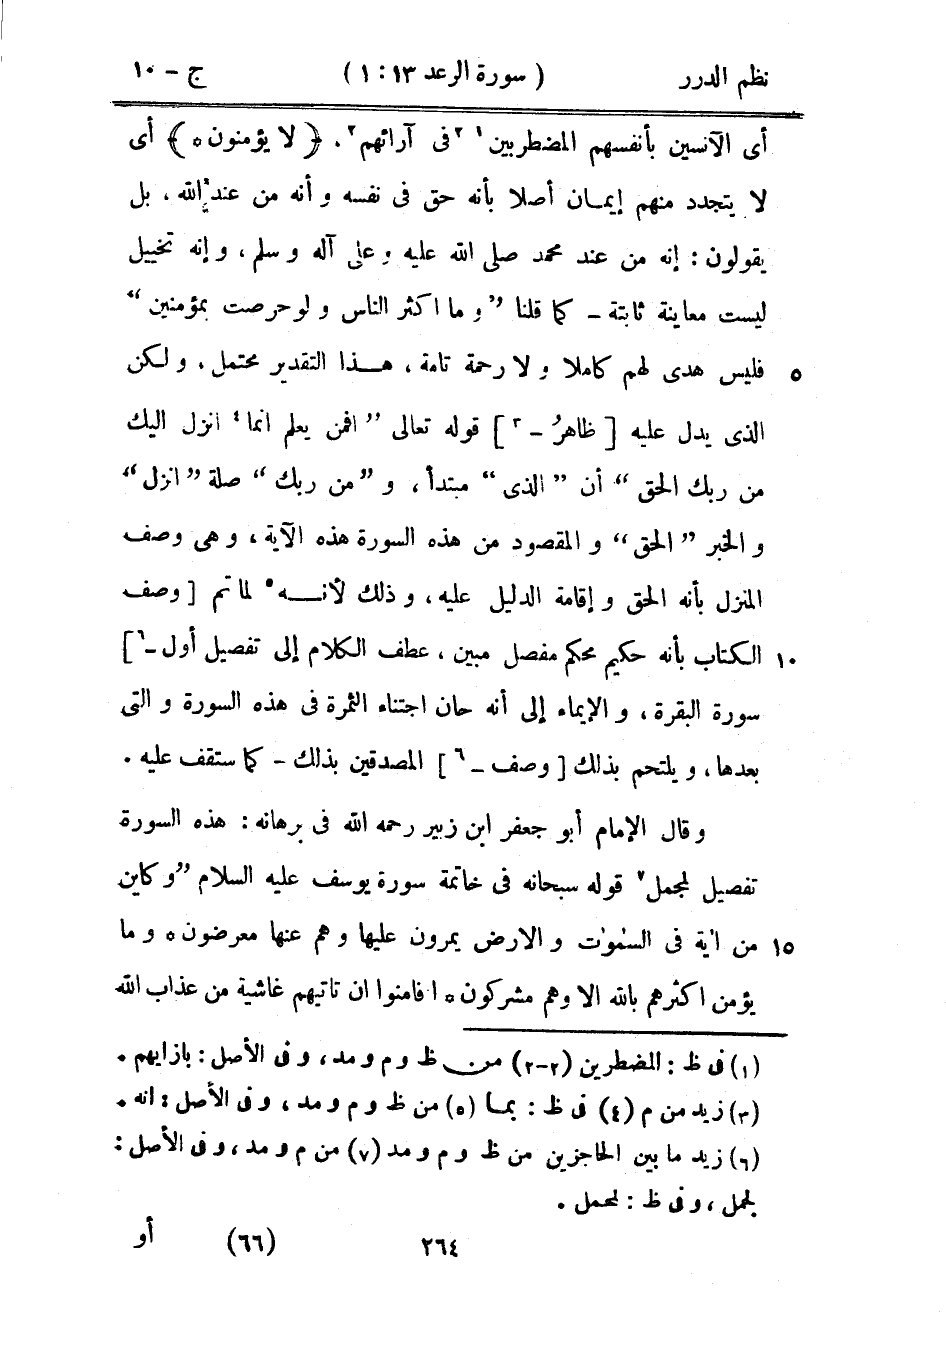 نظم الدرر ( سورة الرعد ١٣ : ١ ) ج – ١٠
أى الآنسين بأنفسهم المضطربين١ ٢فى آرائهم٢ . ﴿ لا يؤمنون ٥ ﴾ أى
لا يتجدد منهم إيمـان أصلا بأنه حق فى نفسه و أنه من عند الله ، بل
يقولون : إنه من عند محمد صلى الله عليه و على آله و سلم ، و إنه تخييل
ليست معاينة ثابتة – كما قلنا ” و ما اكثر الناس و لو حرصت بمؤمنين “
٥ فليس هدى لهم كاملا و لا رحمة تامة ، هـذا التقدير محتمل . و لكن
الذى يدل عليه [ ظاهرُ – ٣ ] قوله تعالى ” افمن يعلم انما٤ انزل اليك
من ربك الحق “ أن ” الذى “ مبتدأ ، و ” من ربك “ صلة ” انزل “
و الخبر ” الحق “ و المقصود من هذه السورة هذه الآية ، و هى وصف
المنزل بأنه الحق و إقامة الدليل عليه ، و ذلك لأنـه٥ لما تم [ وصف
١٠ الكتاب بأنه حكيم محكم مفصل مبين ، عطف الكلام إلى تفصيل أول –٦ ]
سورة البقرة ، و الإيماء إلى أنه حان اجتناء الثمرة فى هذه السورة و التى
بعدها ، و يلتحم بذلك [ وصف – ٦ ] المصدقين بذلك – كما ستقف عليه .
و قال الإمام أبو جعفر ابن زبير رحمه الله فى برهانه : هذه السورة
تفصيل لمجمل٧ قوله سبحانه فى خاتمة سورة يوسف عليه السلام ” و كاين
١٥ من اٰية فى السمٰوٰت و الارض يمرون عليها و هم عنها معرضون ٥ و ما
يؤمن اكثرهم بالله الا و هم مشركون ٥ ا فامنوا ان تاتيهم غاشية من عذاب الله
(١) فى ظ : المضطرين (٢–٢) من ظ و م و مد ، و فى الأصل : بازايهم .
(٣) زيد من م (٤) فى ظ : بمـا (٥) من ظ و م و مد ، و فى الأصل : انه .
(٦) زيد ما بين الحاجزين من ظ و م و مد (٧) من م و مد ، و فى الأصل :
لجمل ، و فى ظ : لمحمل .
٢٦٤ (٦٦) أو